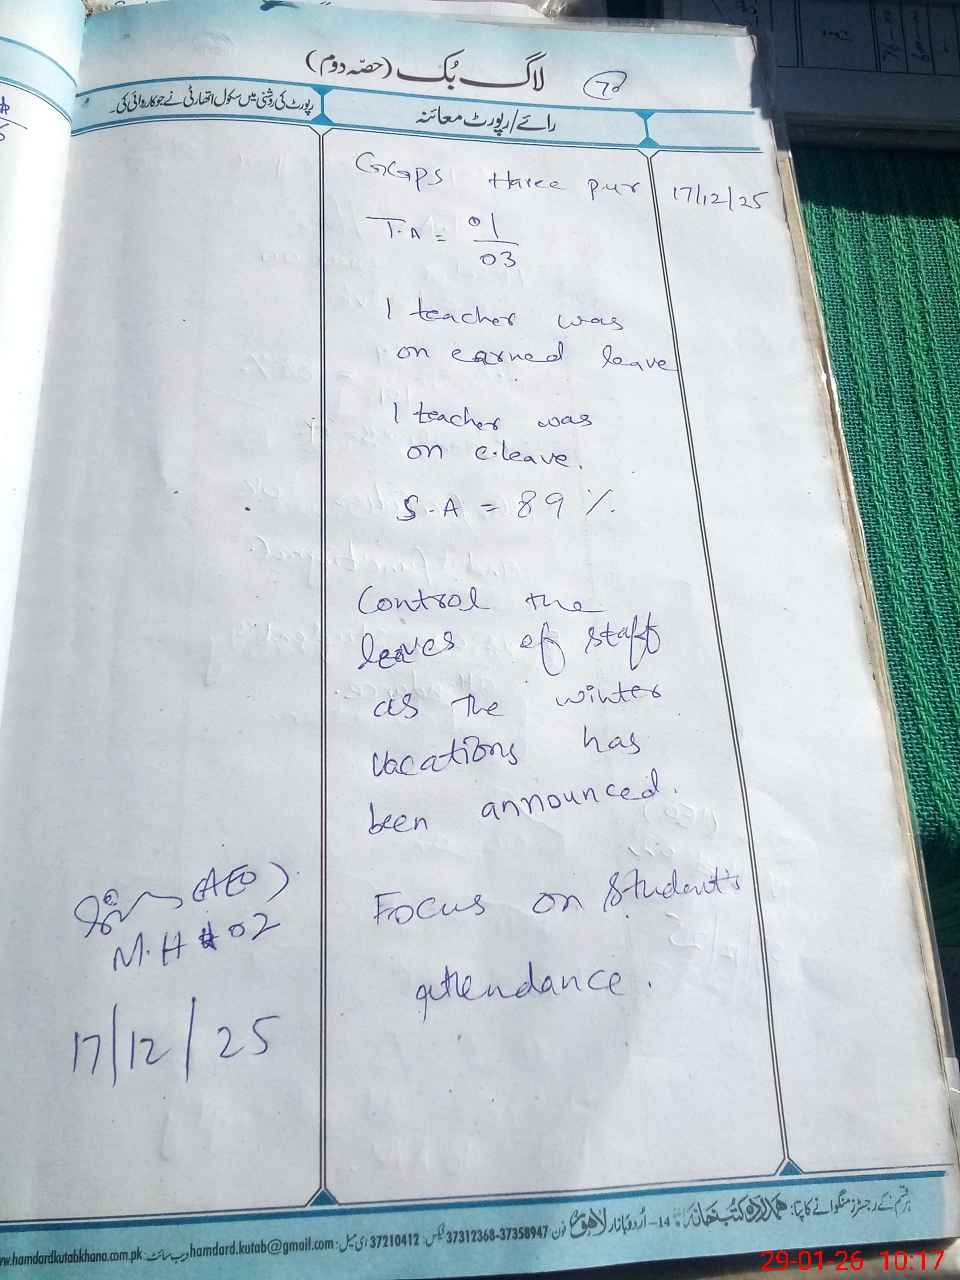 لاگ بُک (حصّہ دوم)
70
رائے/رپورٹ معائنہ
رپورٹ کی روشنی میں سکول اتھارٹی نے جو کاروائی کی۔
17/12/25
GGPS Haree pur
T.A = 01/03
1 teacher was
on earned leave
1 teacher was
on c.leave.
S.A = 89 %.
Control the
leaves of staff
as the winter
vacations has
been announced.
Focus on Student's
attendance.
(AEO)
M.H # 02
17/12/25
ہر قسم کے رجسٹرز منگوانے کا پتا: ہمدرد کتب خانہ 14-اُردو بازار لاہور فون 37358947-37312368 فیکس 37210412 ای میل: hamdard.kutab@gmail.com ویب سائٹ: ww.hamdardkutabkhana.com.pk
29-01-26 10:17